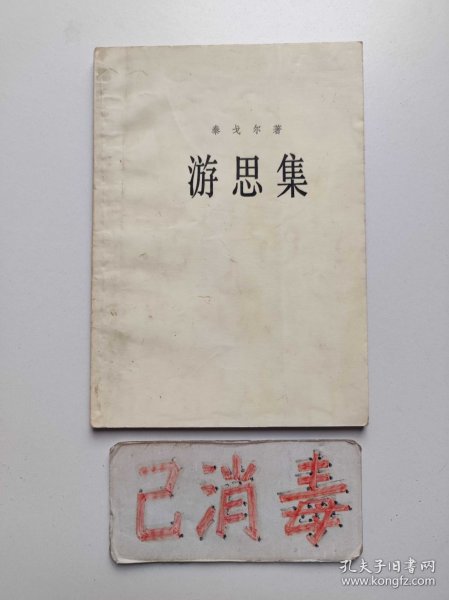 泰戈尔著
游思集
己消毒
孔夫子旧书网
www.kongfz.com